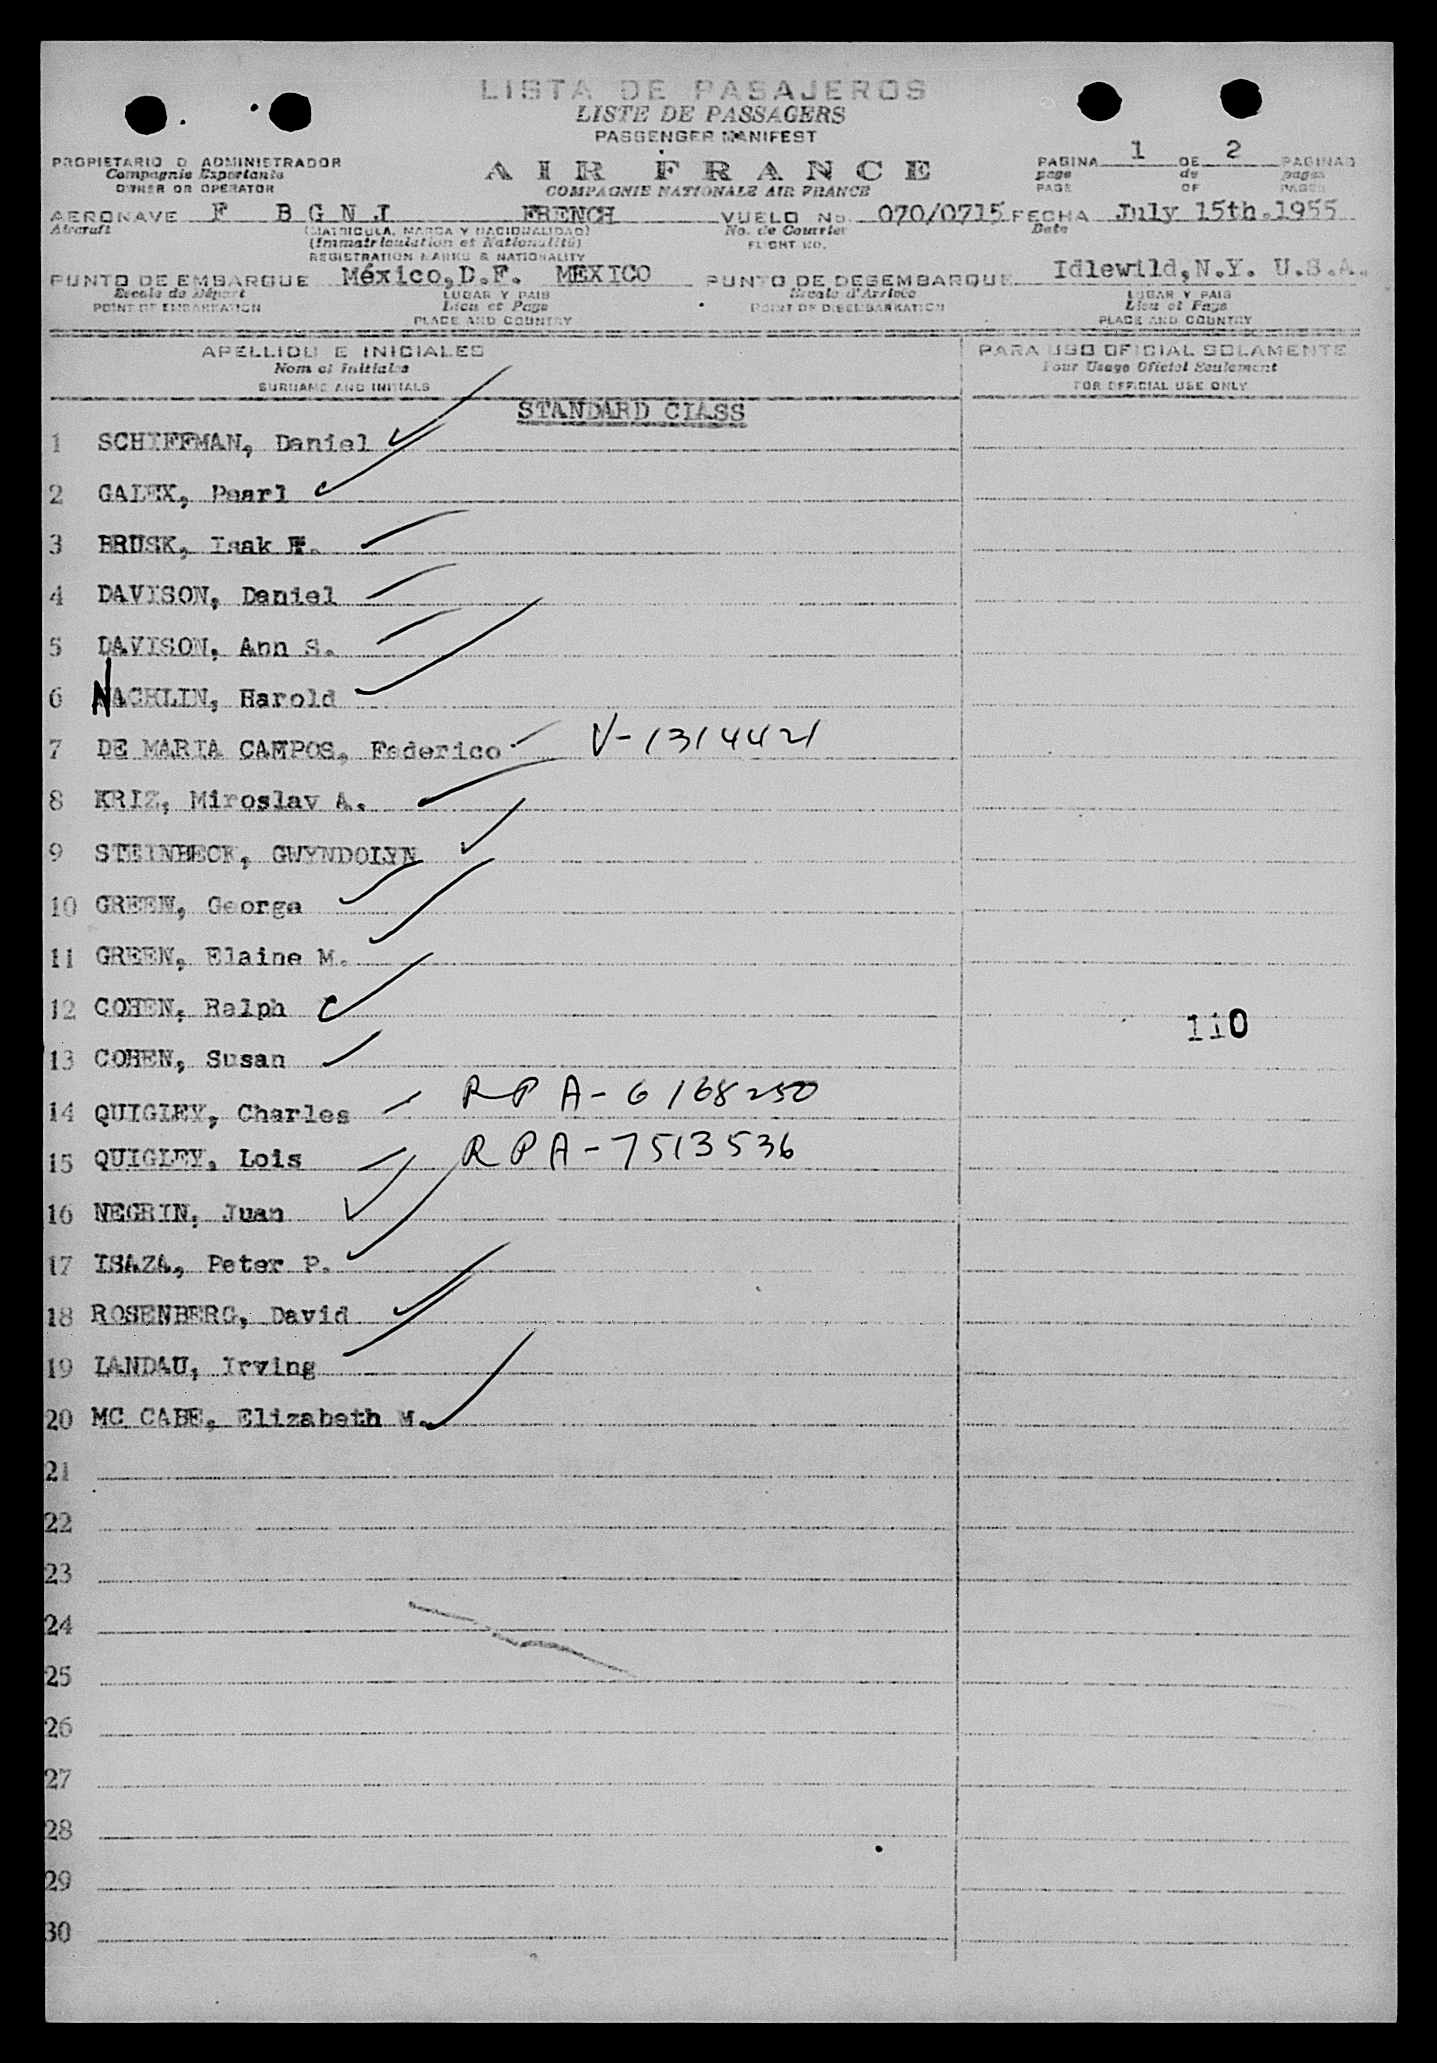 LISTA DE PASAJEROS
LISTE DE PASSAGERS
PASSENGER MANIFEST
PROPIETARIO O ADMINISTRADOR
Compagnie Exportante
OWNER OR OPERATOR
AIR FRANCE
COMPAGNIE NATIONALE AIR FRANCE
PAGINA 1 DE 2 PAGINAS
page de pages
PAGE OF PAGES
AERONAVE F BGNJ FRENCH VUELO No. 070/0715 FECHA July 15th.1955
Aircraft (MATRICULA, MARCA Y NACIONALIDAD) No. de Courrier Date
(Immatriculation et Nationalité) FLIGHT NO.
REGISTRATION MARKS & NATIONALITY
PUNTO DE EMBARQUE México,D.F. MEXICO PUNTO DE DESEMBARQUE Idlewild,N.Y. U.S.A.
Escale de Départ LUGAR Y PAIS Escale d'Arrivée LUGAR Y PAIS
POINT OF EMBARKATION Lieu et Pays POINT OF DISEMBARKATION Lieu et Pays
PLACE AND COUNTRY PLACE AND COUNTRY
APELLIDO E INICIALES PARA USO OFICIAL SOLAMENTE
Nom et Initiales Pour Usage Officiel Seulement
SURNAME AND INITIALS FOR OFFICIAL USE ONLY
STANDARD CLASS
1 SCHIFFMAN, Daniel
2 GALEX, Pearl
3 BRUSK, Isak
4 DAVISON, Daniel
5 DAVISON, Ann S.
6 NACHLIN, Harold
7 DE MARIA CAMPOS, Federico V-1314421
8 KRIZ, Miroslav A.
9 STEINBECK, GWYNDOLYN
10 GREEN, George
11 GREEN, Elaine M.
12 COHEN, Ralph
110
13 COHEN, Susan
14 QUIGLEY, Charles RP A-6168250
15 QUIGLEY, Lois RP A-7513536
16 NEGRIN, Juan
17 ISAZA, Peter P.
18 ROSENBERG, David
19 LANDAU, Irving
20 MC CABE, Elizabeth M.
21
22
23
24
25
26
27
28
29
30